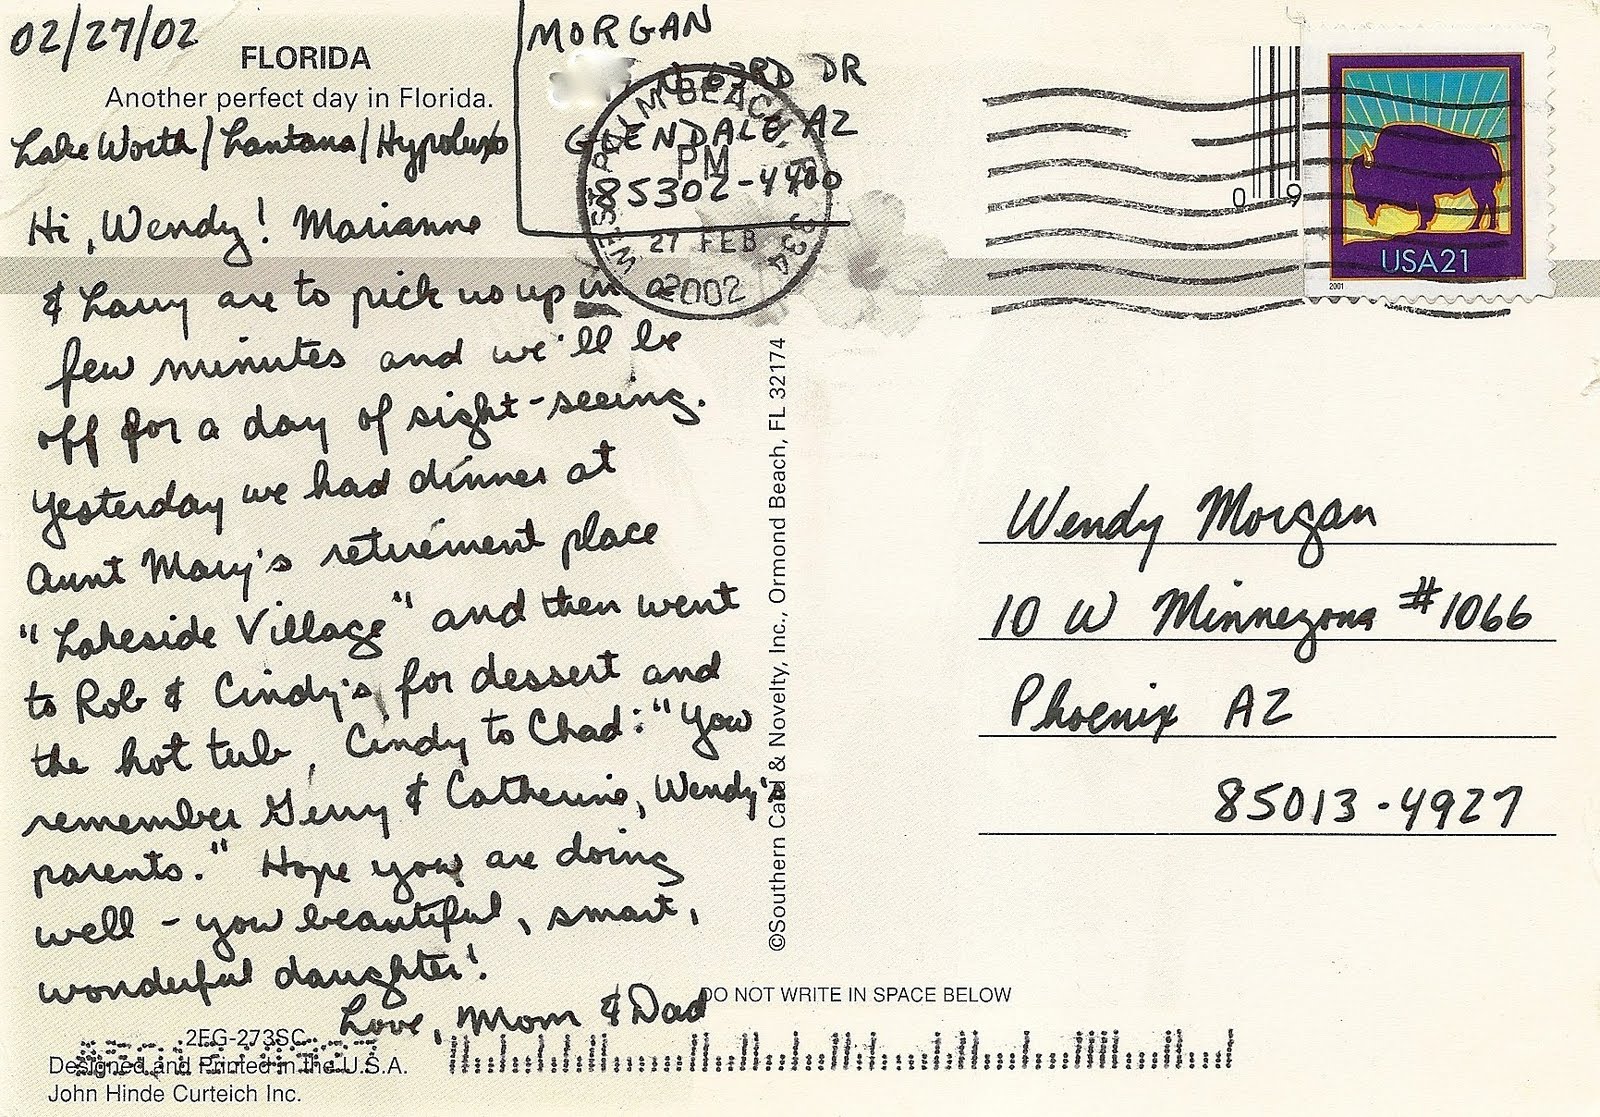 02/27/02
FLORIDA
Another perfect day in Florida.
Lake Worth/Lantana/Hypoluxo
MORGAN
N 63RD DR
GLENDALE AZ
85302-4400
WEST PALM BEACH, FL 334
PM
27 FEB
2002
09
USA21
2001
Hi, Wendy! Marianne
& Larry are to pick us up in a
few minutes and we'll be
off for a day of sight-seeing.
Yesterday we had dinner at
Aunt Mary's retirement place
"Lakeside Village" and then went
to Rob & Cindy's for dessert and
the hot tub, Cindy to Chad: "You
remember Gerry & Catherine, Wendy's
parents." Hope you are doing
well - you beautiful, smart,
wonderful daughter!
Love, Mom & Dad
©Southern Card & Novelty, Inc., Ormond Beach, FL 32174
Wendy Morgan
10 W Minnezona #1066
Phoenix AZ
85013-4927
DO NOT WRITE IN SPACE BELOW
2EG-273SC
Designed and Printed in the U.S.A.
John Hinde Curteich Inc.